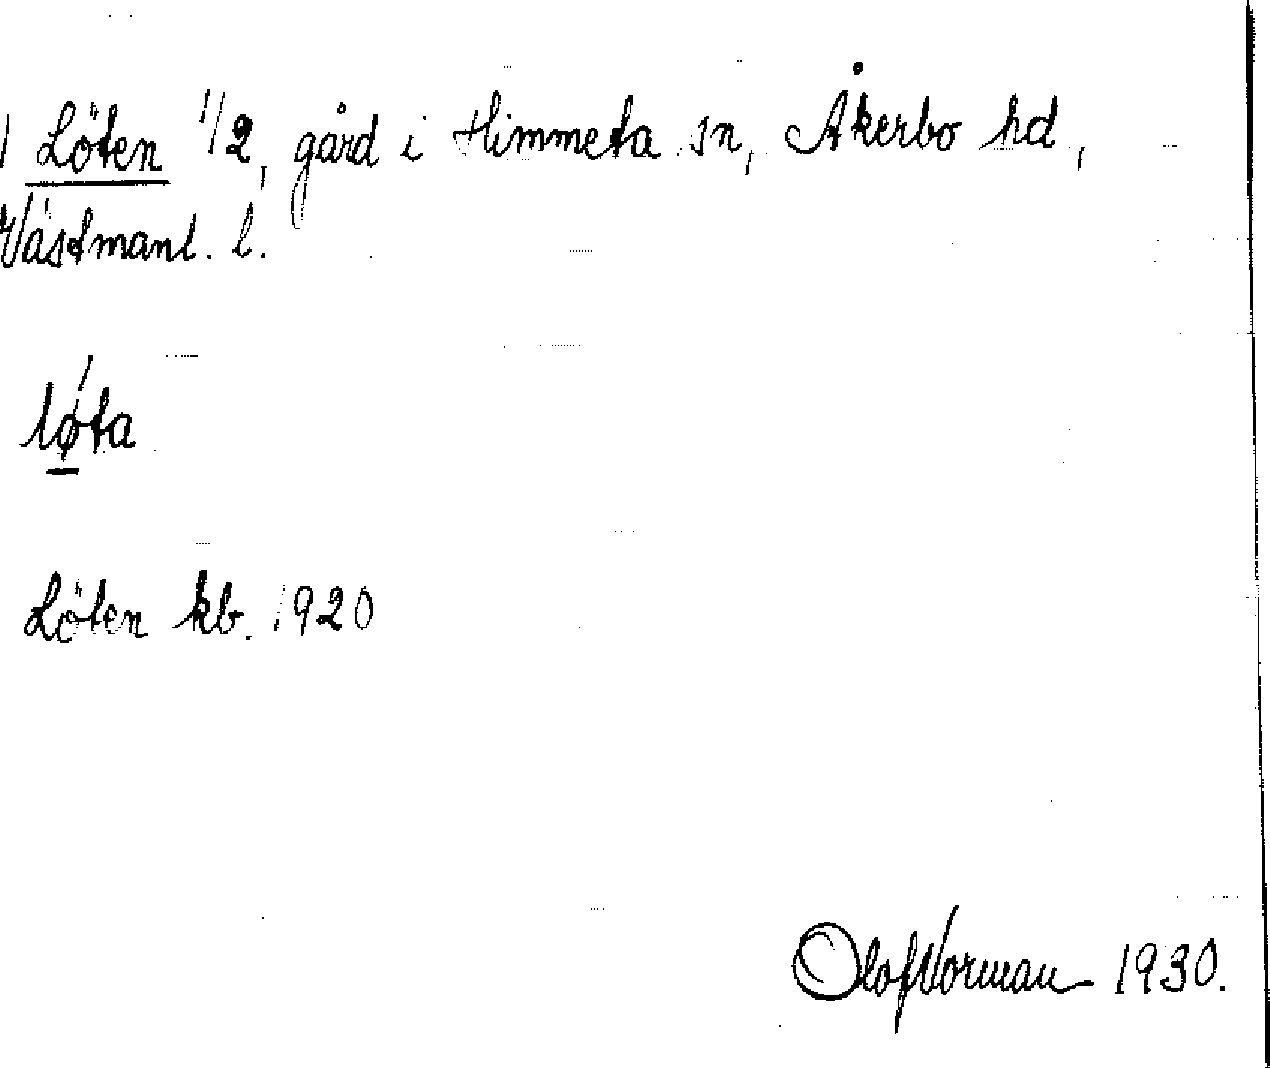 1 Löten 1/2, gård i Himmeta sn, Åkerbo hd,
Västmanl. l.
løta
Löten kb. 1920
Olof Norman 1930.